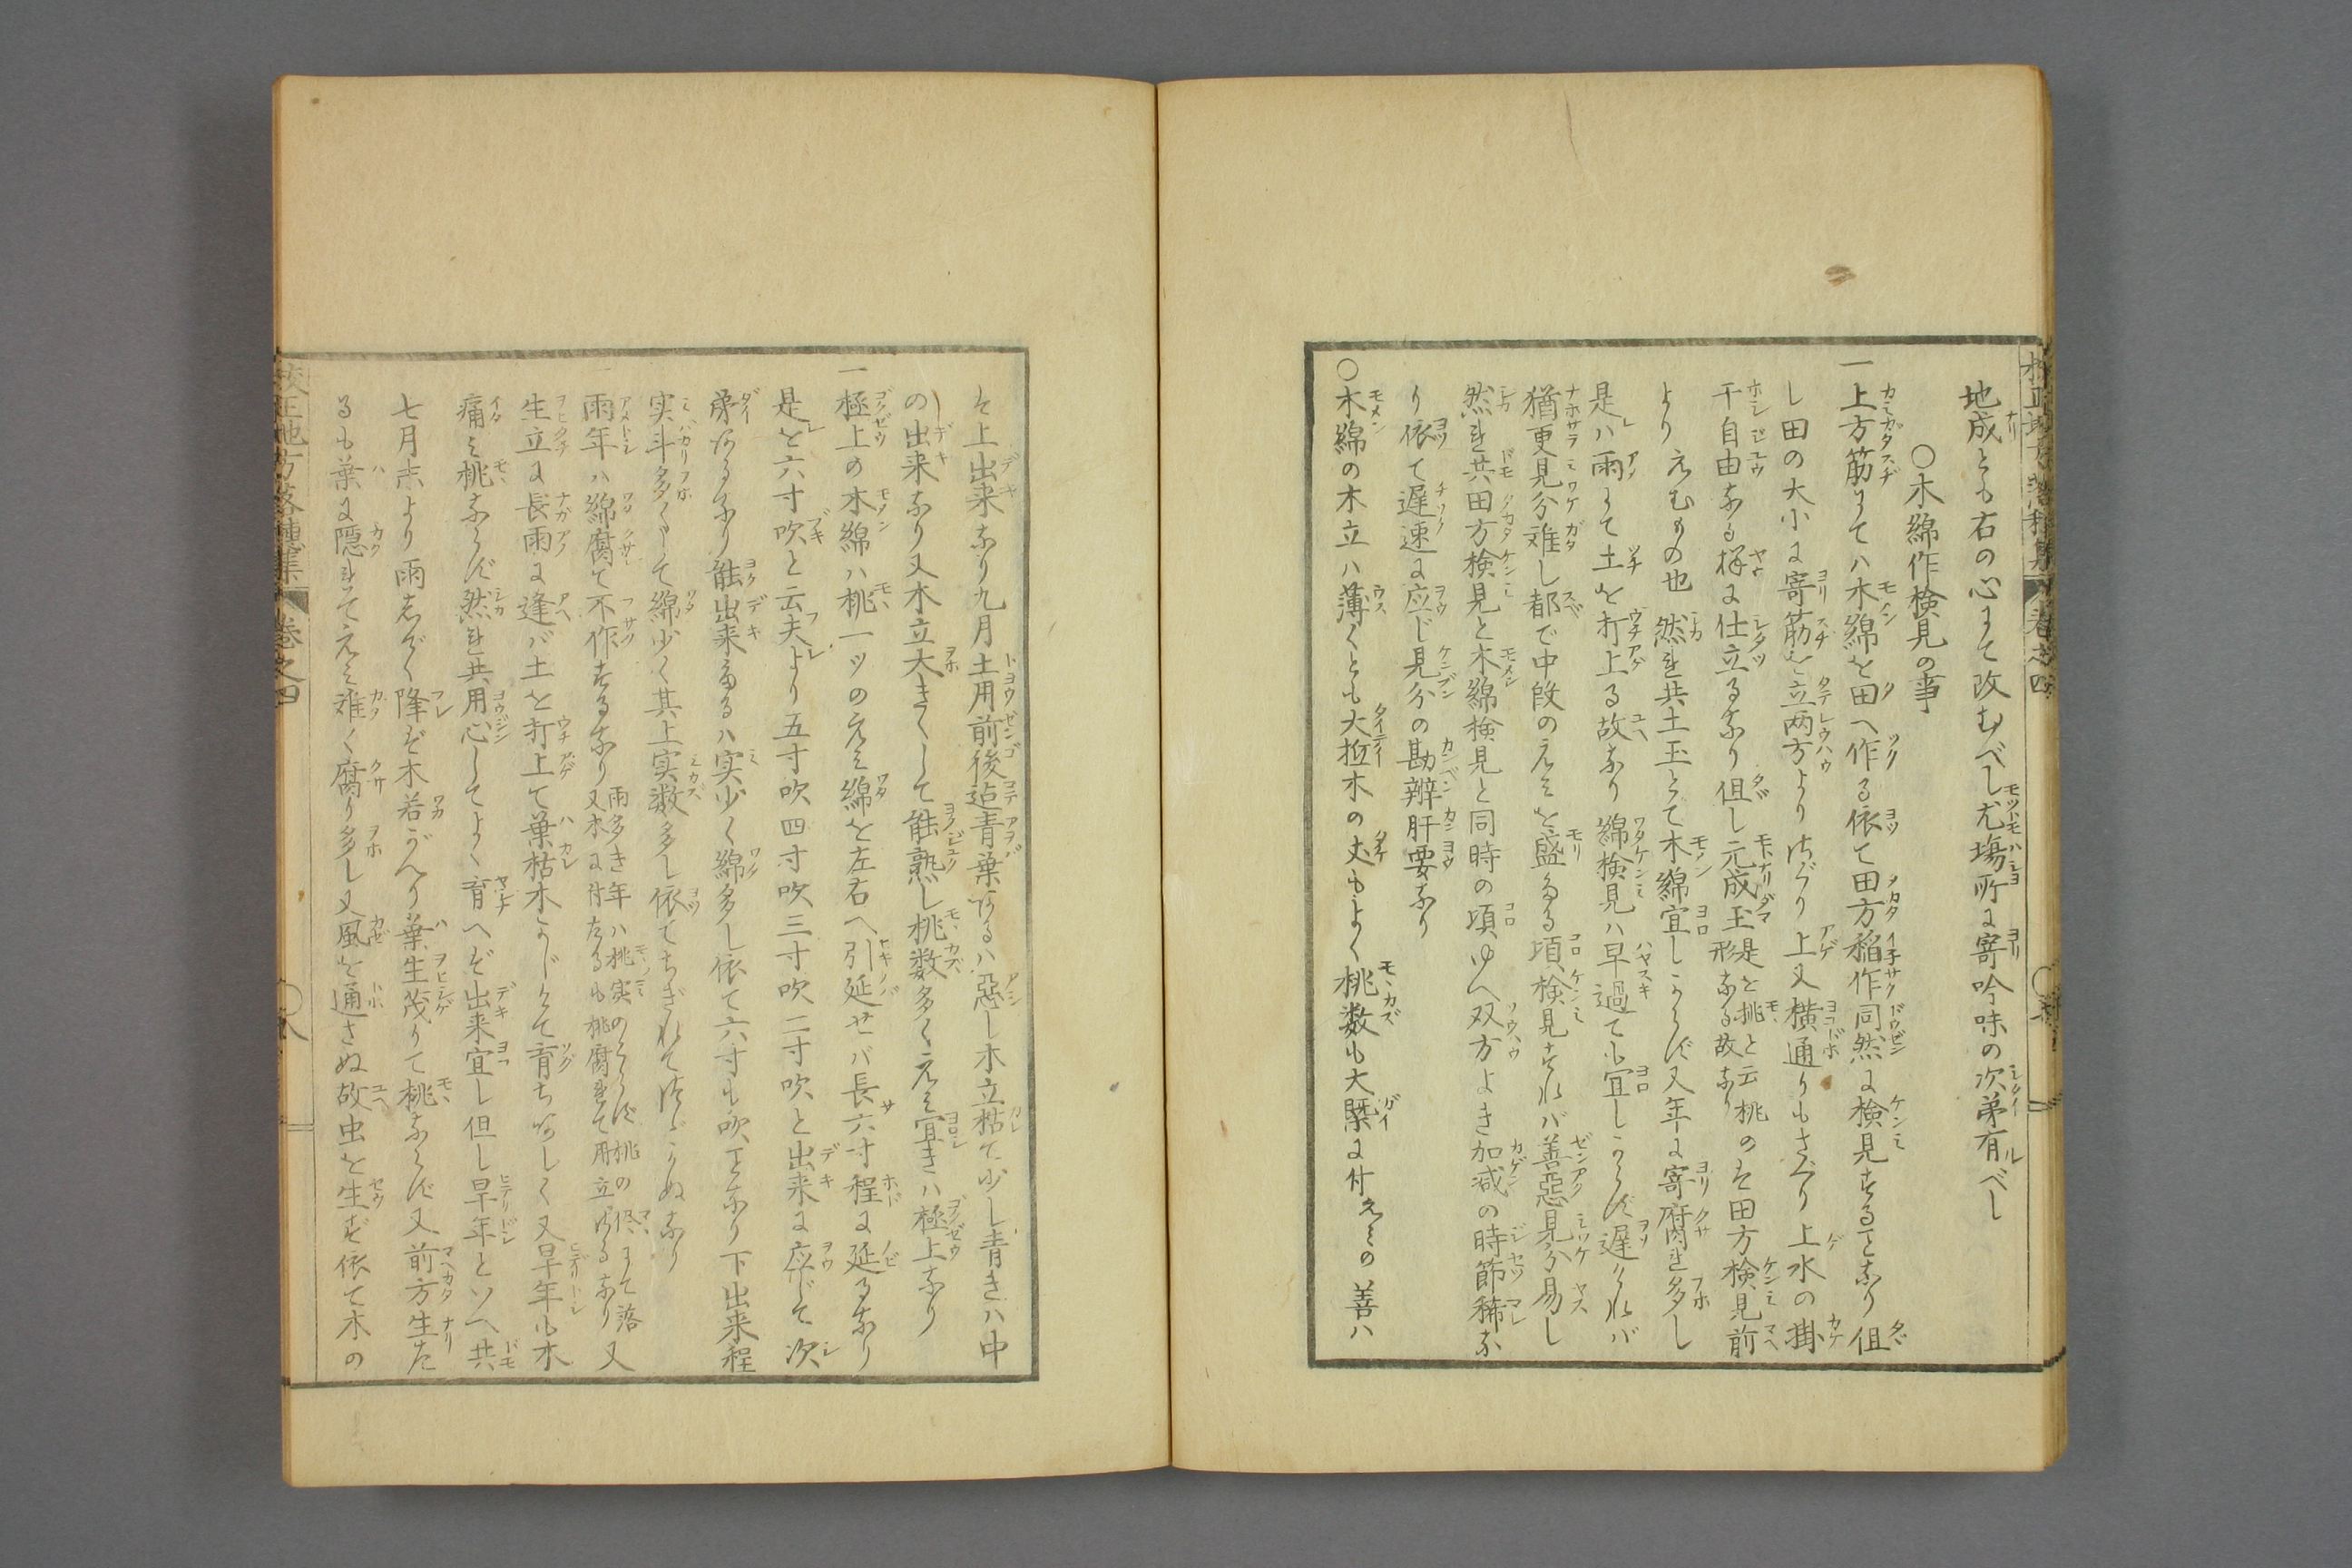 地成とも右の心にて改むべし尤場所に寄吟味の次第有べし
○木綿作検見の事
一上方筋にてハ木綿を田へ作る依て田方稲作同然に検見するヿなり但
し田の大小に寄筋を立両方より ほぐり上又横通りもさぐり上水の掛
干自由なる様に仕立るなり但し元成玉是を桃と云桃の形なる故なりハ田方検見前
よりえむもの也然れ共土玉とて木綿宜しからず又年に寄腐れ多し
是ハ雨にて土を打上る故なり綿検見ハ早過ても宜しからず遅けれバ
猶更見分難し都て中段のえみを盛なる頃検見すれバ善悪見分易し
然れ共田方検見と木綿検見と同時の頃ゆへ双方よき加減の時節稀な
り依て遅速に応じ見分の勘辨肝要なり
○木綿の木立ハ薄くとも大抵木の丈もよく桃数も大槩に付えみの善ハ
そ上出来なり九月土用前後迠青葉あるハ悪し木立枯て少し青きハ中
の出来なり又木立大きくして能熟し桃数多くえみ宜きハ極上なり
一極上の木綿ハ桃一ッのえみ綿を左右へ引延せバ長六寸程に延るなり
是を六寸吹と云夫より五寸吹四寸吹三寸吹二寸吹と出来に応じて次
第あるなり能出来たるハ実少く綿多し依て六寸も吹ヿなり下出来程
実斗多くして綿少く其上実数多し依てちぎれてほどかぬなり
雨年ハ綿腐て不作するなり雨多き年ハ桃実のらず桃の侭にて落又又木に付たるも桃腐れて用立ざるなり又
生立に長雨に逢バ土を打上て葉枯木こじけて育ちあしく又旱年も木
痛み桃ならず然れ共用心してよく育へど出来宜し但し旱年といへ共
七月末より雨しぞく降ど木若がへり葉生茂りて桃ならず又前方生た
るも葉に隠れてえみ難く腐り多し又風を通さぬ故虫を生ず依て木の
校正地方落穂集 巻之四 ○八